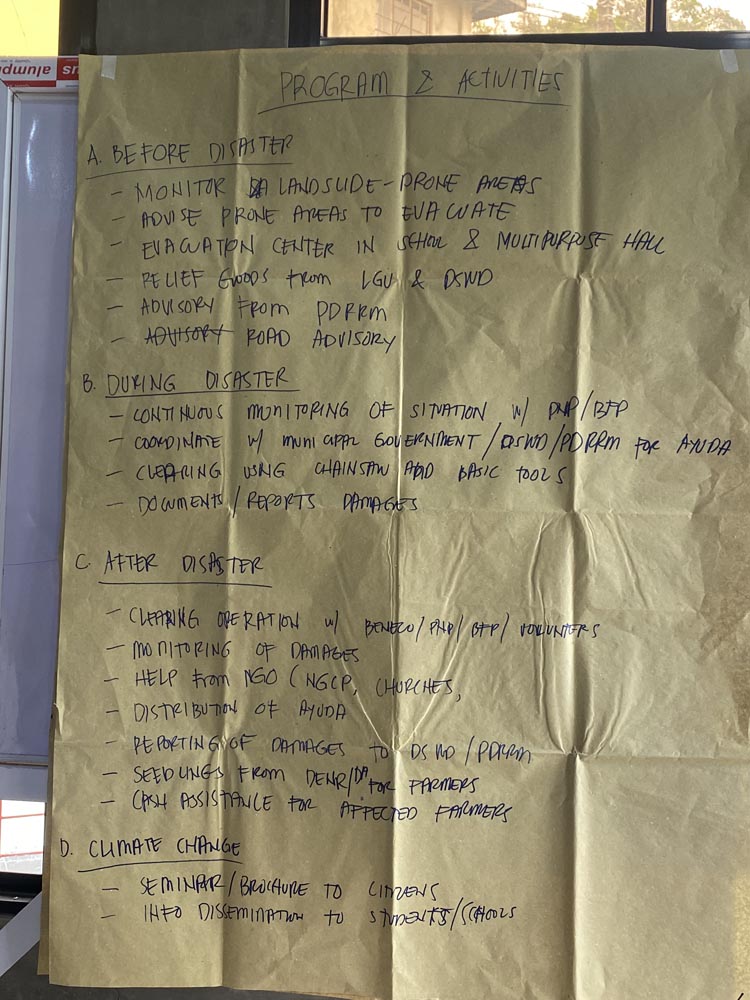 PROGRAM & ACTIVITIES
A. BEFORE DISASTER
- MONITOR LANDSLIDE-PRONE AREAS
- ADVISE PRONE AREAS TO EVACUATE
- EVACUATION CENTER IN SCHOOL & MULTIPURPOSE HALL
- RELIEF GOODS from LGU & DSWD
- ADVISORY FROM PDRRM
- ADVISORY ROAD ADVISORY
B. DURING DISASTER
- CONTINUOUS MONITORING OF SITUATION w/ PNP/BFP
- COORDINATE w/ MUNICIPAL GOVERNMENT/DSWD/PDRRM for AYUDA
- CLEARING USING CHAINSAW AND BASIC TOOLS
- DOCUMENTS/REPORTS DAMAGES
C. AFTER DISASTER
- CLEARING OPERATION w/ BENECO/PNP/BFP/VOLUNTERS
- MONITORING OF DAMAGES
- HELP from NGO (NGCP, CHURCHES,
- DISTRIBUTION OF AYUDA
- REPORTING OF DAMAGES TO DSWD/PDRRM
- SEEDLINGS FROM DENR/DA FOR FARMERS
- CASH ASSISTANCE FOR AFFECTED FARMERS
D. CLIMATE CHANGE
- SEMINAR/BROCHURE TO CITIZENS
- INFO DISSEMINATION TO STUDENTS/SCHOOLS